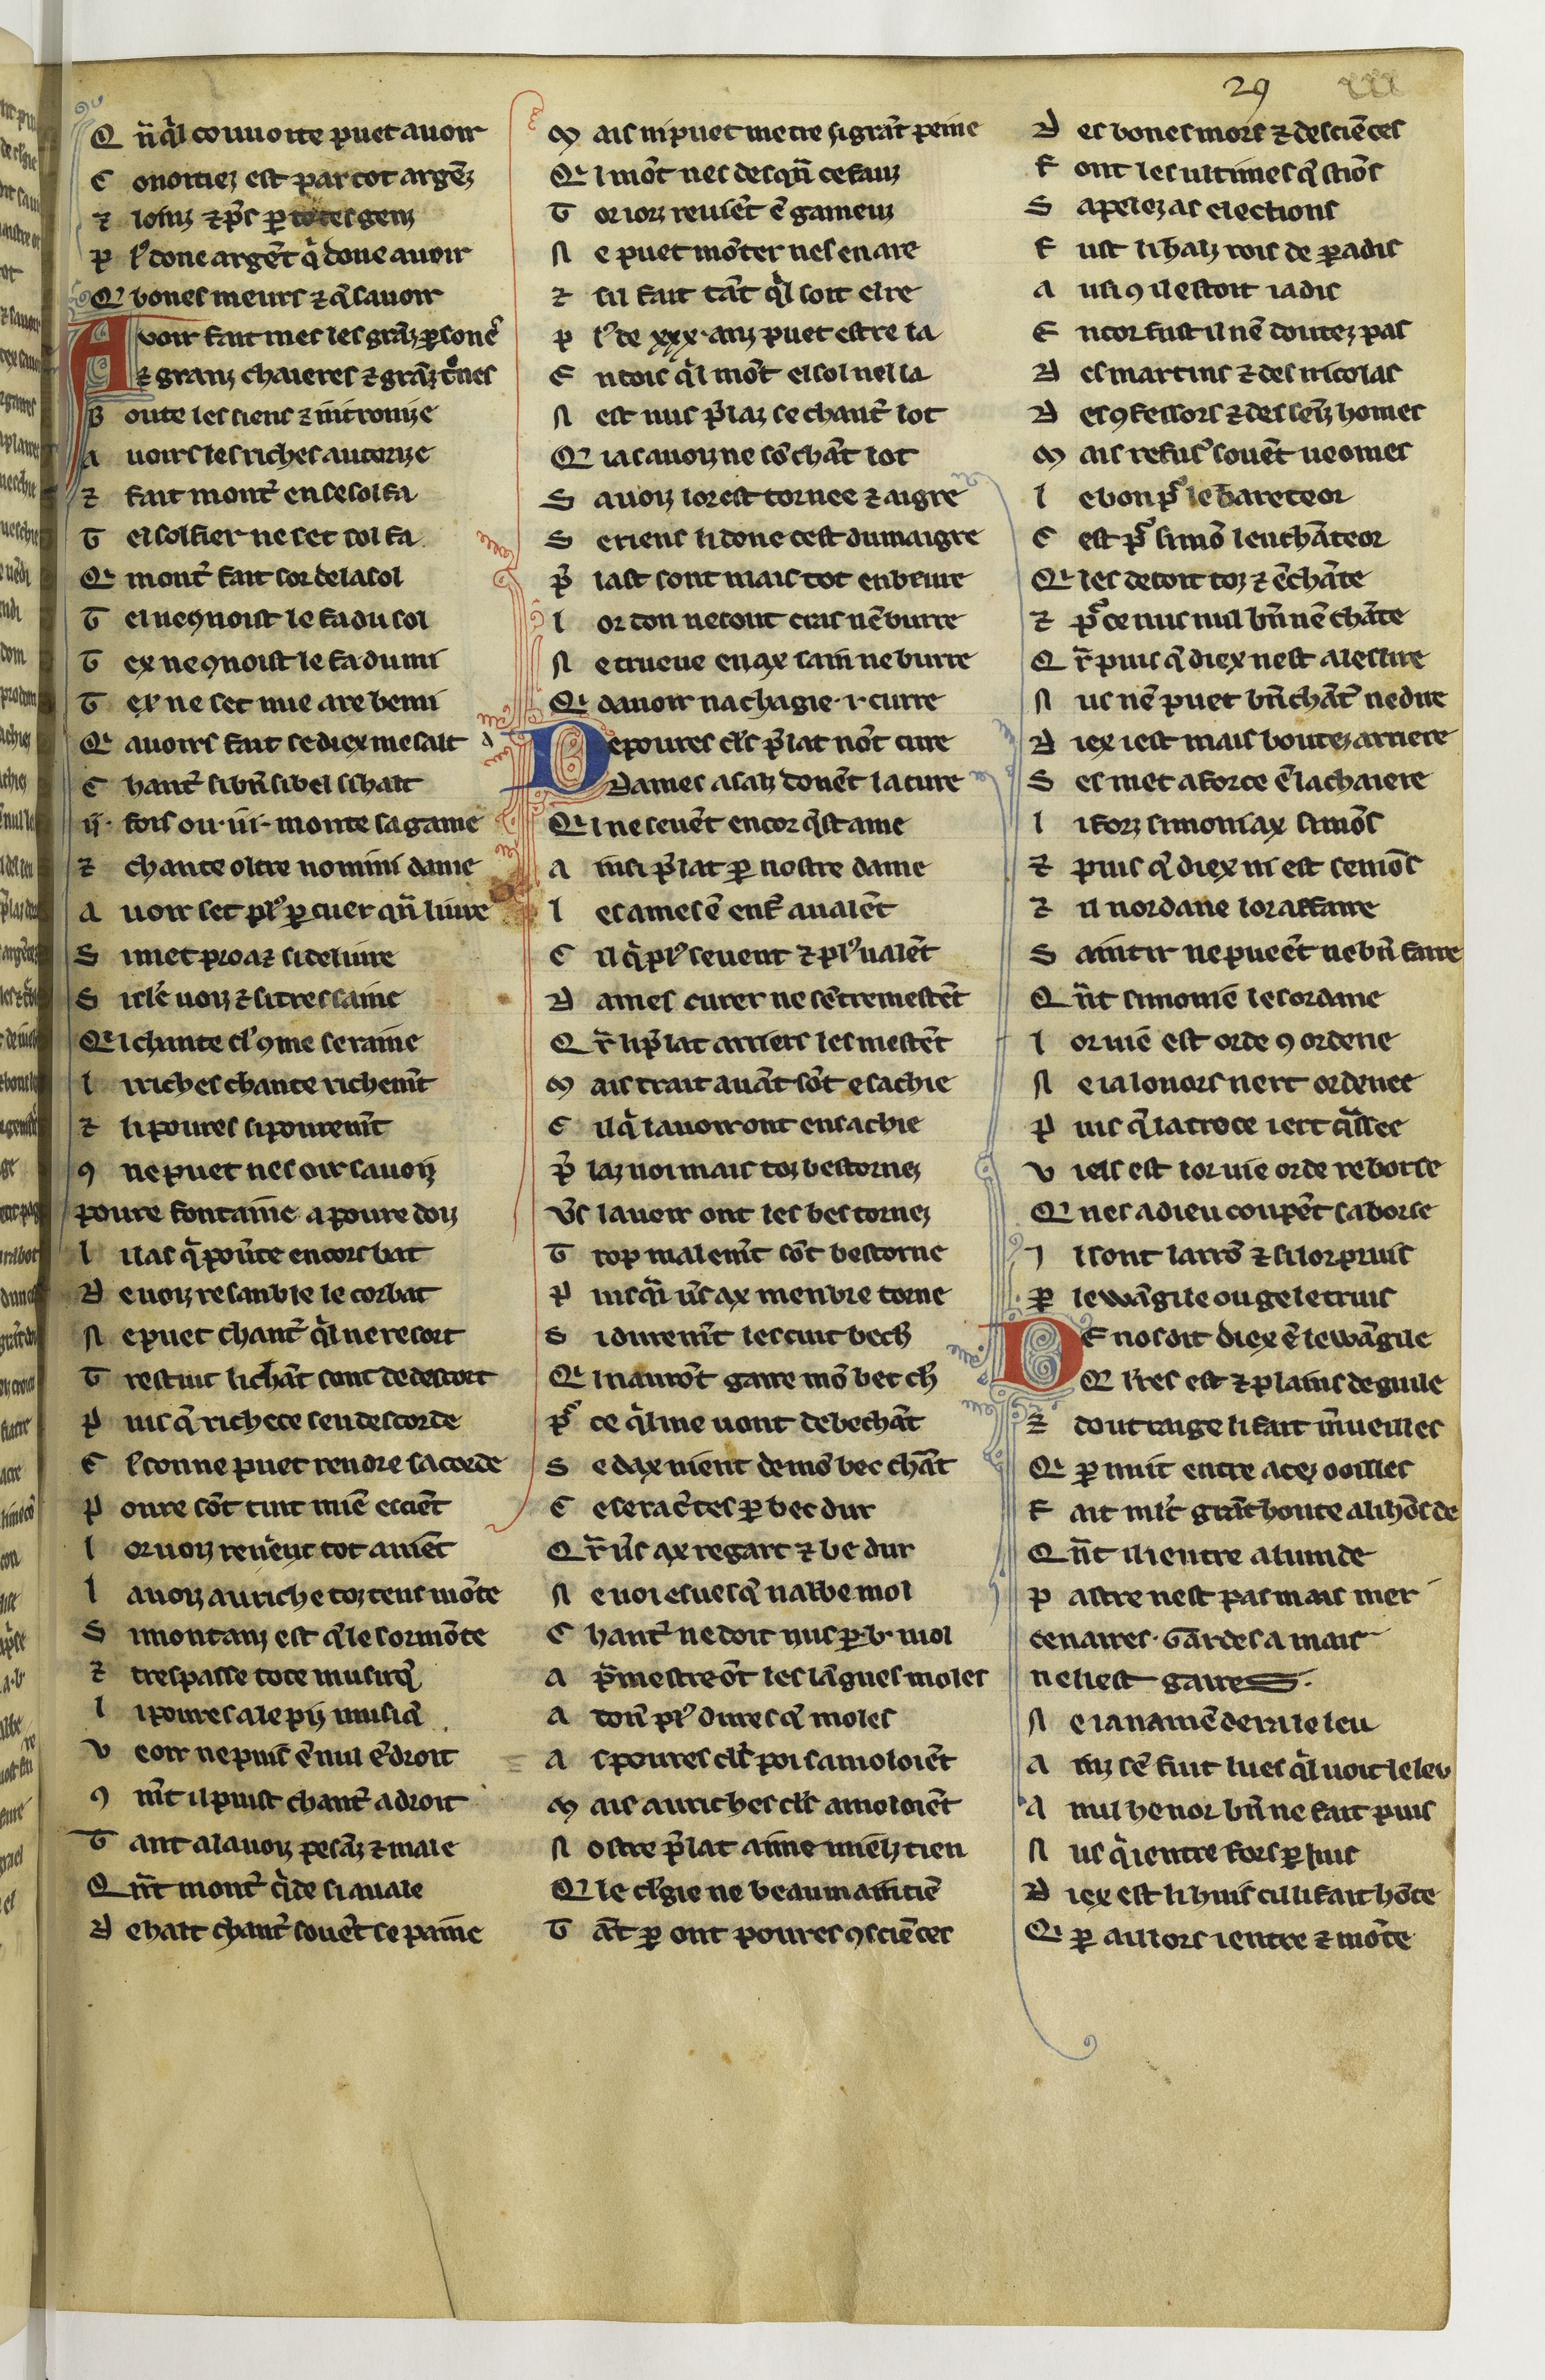 29
xxx
Q n̄ q̉l couuoite puet auoir
C onoittiez est par tot argēz
⁊ loinz ⁊ p̄s ꝑ totes genz
P lꝰ done argēt q̉ done auoir
Q bones meurs ⁊ q̄ sauoir
A voir fait mes les grāz ꝑsonēs
⁊ granz chaieres ⁊ grāz t̉nes
B oute les siens ⁊ intronize
A uoirs les riches autorize
⁊ fait mont̉ en ce sol fa
T el sollier ne set sol fa
Qi mont̉ fait sor de la sol
T el neꝯnoist le fa du sol
T ex ne ꝯnoist le fa du mi
T ex ne set mie a re bemi
Qi auoirs fait se diex me salt
C hant̉ si bn̄ si bel si halt
ij. fois ou .iii. monte sa game
⁊ chante oltre nomini dame
A uoir set plꝰ ꝑ cuer qn̄ liure
S imet proaz si deliure
S i cle uoiz ⁊ si tres saine
Qi chante cl̉ ꝯme seraine
L i riches chante richemt̄
⁊ li poures si pouremt̄
ꝯ ne puet nes oir sa uoiz
Poure fontaine a poure doiz
L i las q̉ pou̓te encors bat
D e uoiz resanble le corbat
N e puet chant̉ q̉l ne resort
T restuit li chāt sont de descort
P uis q̄ richece sen descorde
E lꝰ conne puet rendre sacorde
P oure sōt tuit miē escient
L or uoiz reuient tot a nient
L a uoiz au riche toz tens mōte
S i montanz est q̄ le sormōte
⁊ trespasse tote musiq̄
L i poures a le pis musiq̄
V eoir ne puis ē nul ēdroit
ꝯ mt̄ il puist chant̉ adroit
T ant a la uoiz pesāz ⁊ male
Q n̄t mont̉ q̉de si auale
D e halt chant̉ souēt se paine
M ais ni puet metre si grāt peine
Qi mōt nes desqn̄ cefauz
T oriorz reuiēt ē gameuz
N e puet mōter nes en are
⁊ sil fait tāt q̉l soit elre
P lꝰ de xxx. anz puet estre la
E ntois q̉l mōt el sol nel la
N est nus p̄laz se chant̉ lot
Qi ia sa uoiz ne sōchāt lot
S a uoiz lor est tornee ⁊ aigre
S e riens li done cest du maigre
P̄ last sont mais tot enbeiure
L or ton ne sont cras nē burre
N e trueue en ax sain ne burre
Qi dauoir na chagie .i. curre
D e poures cl̄s p̄lat nōt cure
D ames a saiz donēt la cure
Qi ne seuēt encor q̄st ame
A insi p̄lat ꝑ nostre dame
L es ames ē enf̄ aualēt
C il q̉ plꝰ seuent ⁊ plꝰ ualēt
D ames curer ne sētremestēt
Q r̄ li p̄lat arriers les mestēt
M ais trait auāt sōt e sachie
C il q̉ lauoir ont ensachie
P̄ laz uoi mais toz bestornez
V̓s lauoir ont les bes tornez
T rop malemt̄ sōt bestorne
P uisq̄ u̓s ax menbre torne
S i duremt̄ les cuit bech̉
Qi naurōt gaire mō bec ch̉
P̉ ce q̉l me uont debechāt
S e dax nient de mō bec chāt
C e sera c̉tes ꝑ bec dur
Q r̄ u̓s ax regart ⁊ be dur
N e uoi esuesq̄ nabbe mol
C hant̉ ne doit nus ꝑ .b. mol
A p̄mestre ōt les lāgues moles
A ton̄ plꝰ dures q̄ moles
A s poures cl̄s poi samoloiēt
M ais au riches cl̄s amoloiēt
N ostre p̄lat aime mielz tien
Q le cl̄gie ne beau maintiē
T āt ꝑ ont poures ꝯsciēces
D es bones mors ⁊ des sciēces
F ont les ultimes q̄stiōs
S apelez as elections
F ust li halz rois de ꝑadis
A usi ꝯ il estoit iadis
E ncor fust il nē doutez pas
D es martins ⁊ des nicolas
D es ꝯfessors ⁊ des seīz homes
M ais refus̉ souēt ueomes
L e bon p̉ le bareteor
C est p̉ simō lenchāteor
Qi les decoit toz ⁊ ēchāte
⁊ p̉ ce nus mil bn̄ nē chāte
Q r̄ puis q̄ diex nest a leslire
N us nē puet bn̄ chāt̉ ne dire
D iex iest mais boutez arriere
S es met a force ē la chaiere
L i forz simoniax simōs
⁊ puis q̄ diex ni est semōs
⁊ il nordane lor affaire
S aintir ne pueēt ne bn̄ faire
Q n̄t simoniē les ordane
L or uiē est orde ꝯ ordene
N e ia louors niert ordenee
P uis q̄ la croce iert q̉ssee
V iels est lor uie orde reborse
Qi nes a dieu coupēt sa borse
I l sont larrō ⁊ si lor pruis
ꝑ lewāgile ou ge le truis
D E nos dit diex ē lewāgile
Q l̉res est ⁊ plains de guile
⁊ doutrage li fait m̄ueilles
Qi ꝑ nuit entre a cez ooilles
F ait mlt̄ grāt honte a lihōs de
Q n̄t il i entre a lumde
P astre nest pas mais mer
cenaires. Gardes a mais
ne li est gaires.
N e ia namē derai le leu
A nz sē fuit lues q̉l uoit le leu
A nul henor bn̄ ne fait puis
N us q̉ i entre fors ꝑ luis
D iex est li huis cil li fait hōte
Qi ꝑ aillors i entre ⁊ mōte